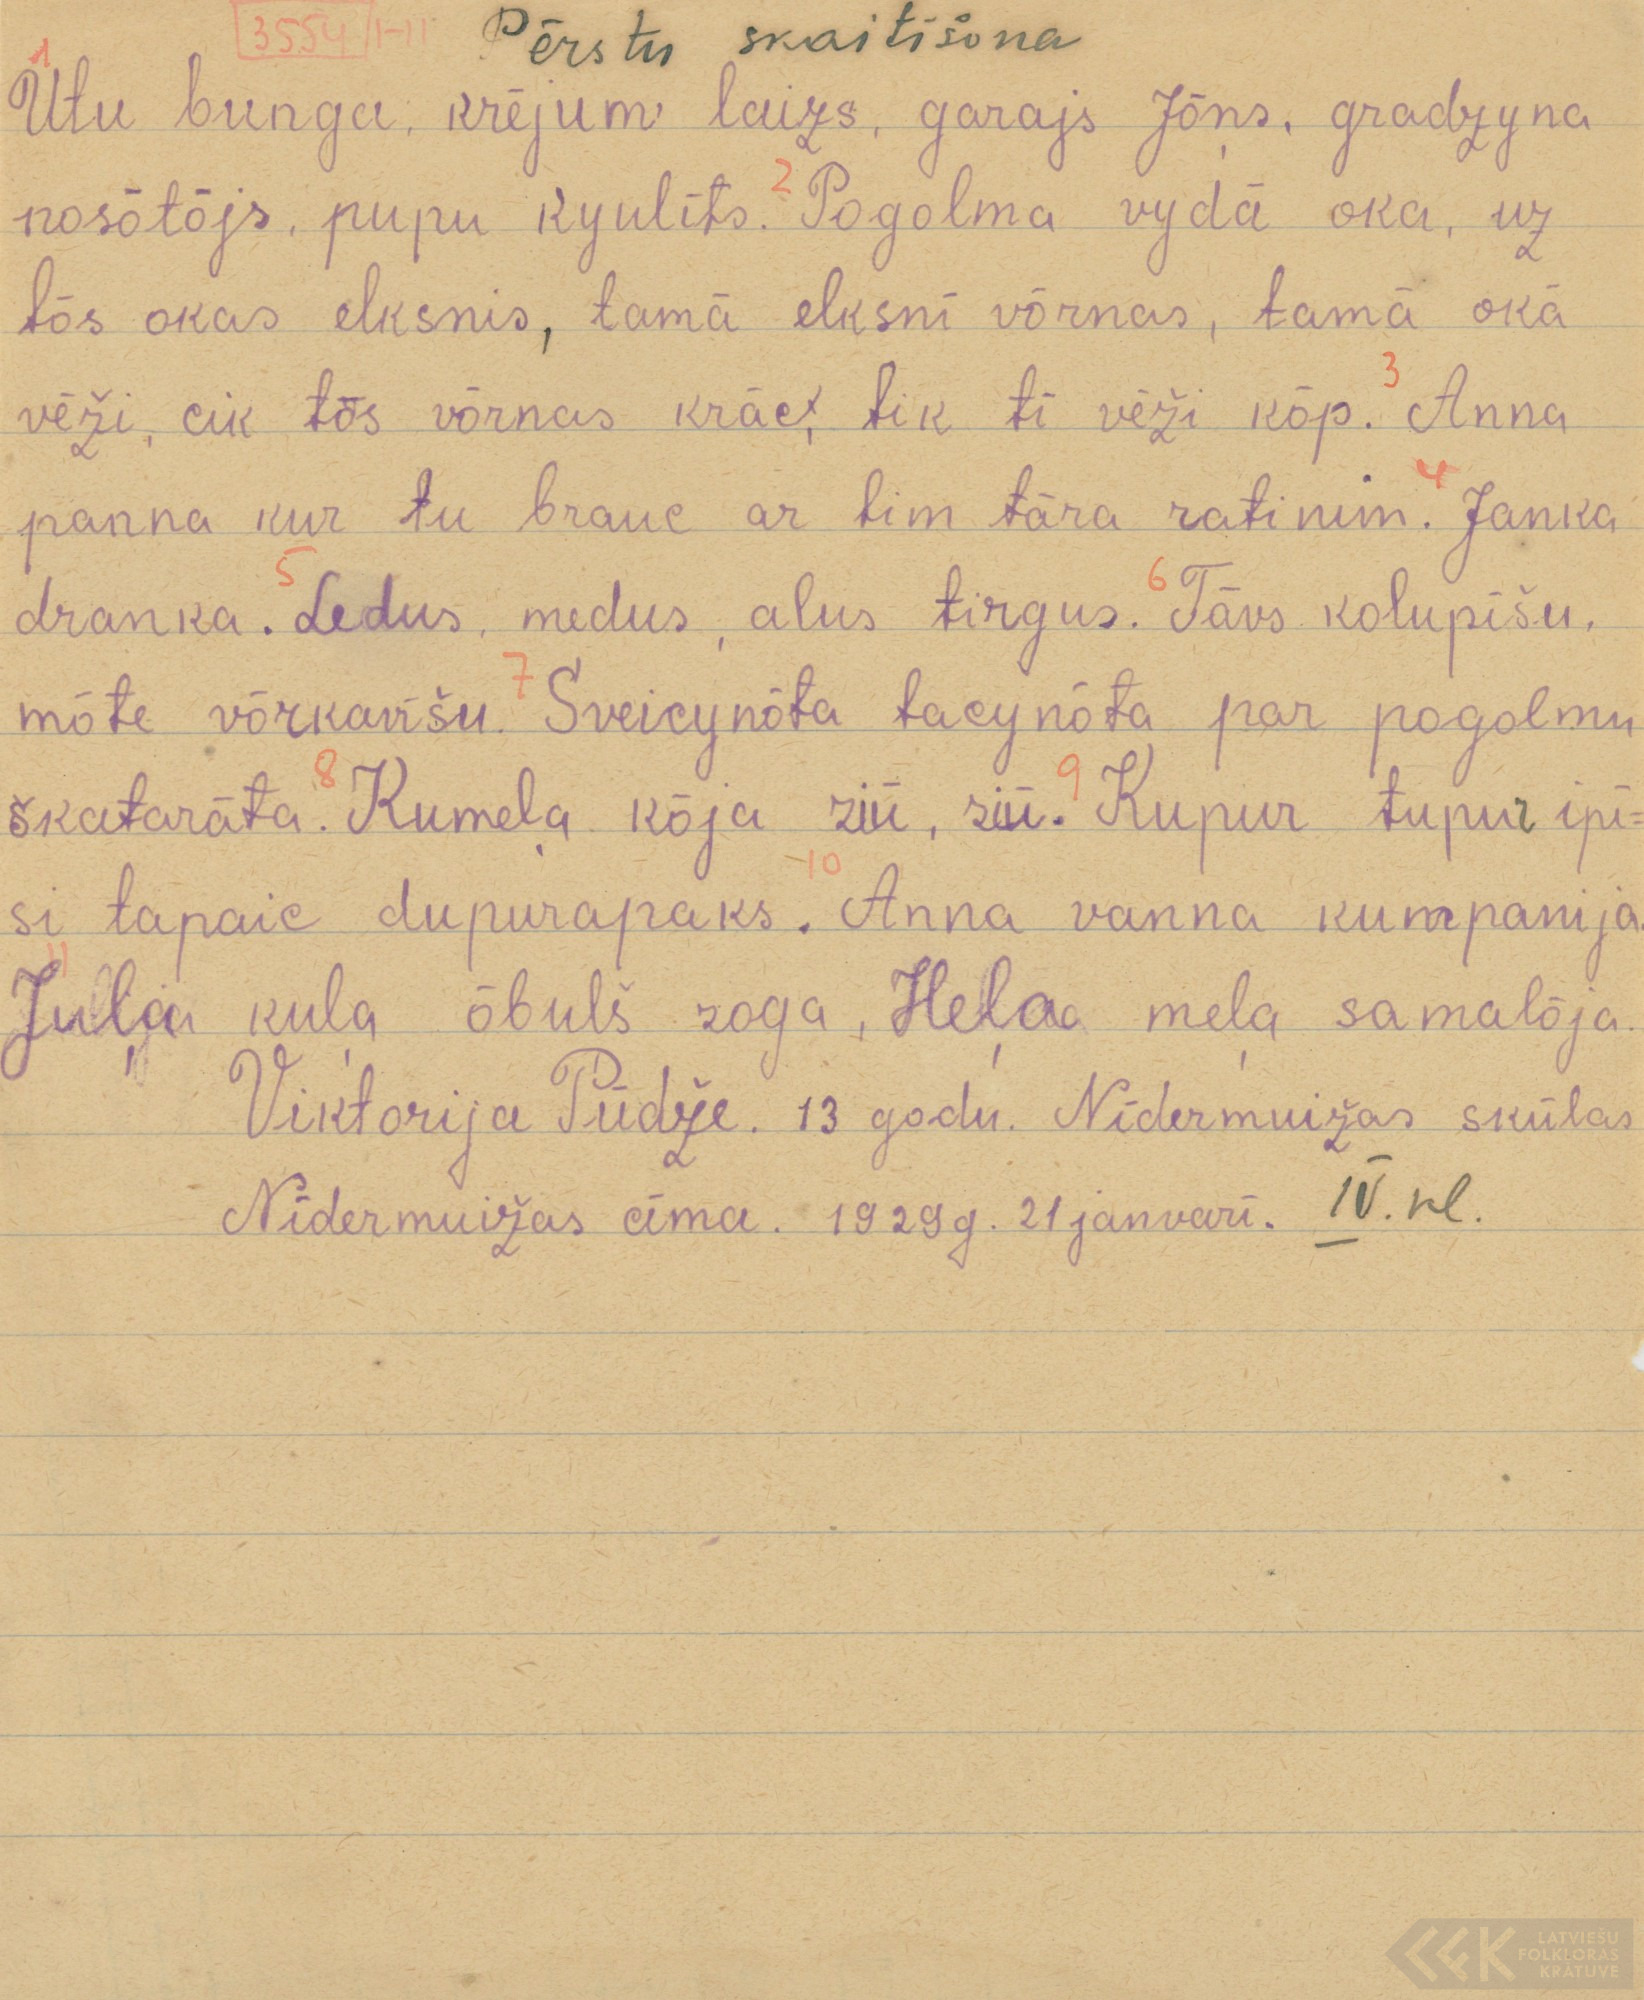 3554 1-11 Pērstu skaitīšona
1 Utu bunga, krējum laizs, garajs Jōņs, gradzyna
nosōtōjs, pupu kyulīts. 2 Pogolma vydā oka, uz
tōs okas elksnis, tamā elksnī vōrnas, tamā okā
vēži, cik tōs vōrnas krāc, tik tī vēži kōp. 3 Anna
panna kur tu brauc ar tim tāra ratinim. 4 Janka
dranka. 5 Ledus, medus, alus tirgus. 6 Tāvs kolupīšu,
mōte vōrkavīšu. 7 Sveicynōta tacynōta par pogolmu
škatarāta. 8 Kumeļa kōja ziū, ziū. 9 Kupur tupur ipī=
si tapaic dupurapaks. 10 Anna vanna kumpanija.
11 Juļa kuļa ōbulš zoga, Heļa meļa samalōja.
Viktorija Pūdže. 13 godu. Nīdermuižas skūlas
Nīdermuižas cīma. 1929g. 21 janvarī. IV. kl.
LATVIEŠU
FOLKLORAS
KRĀTUVE